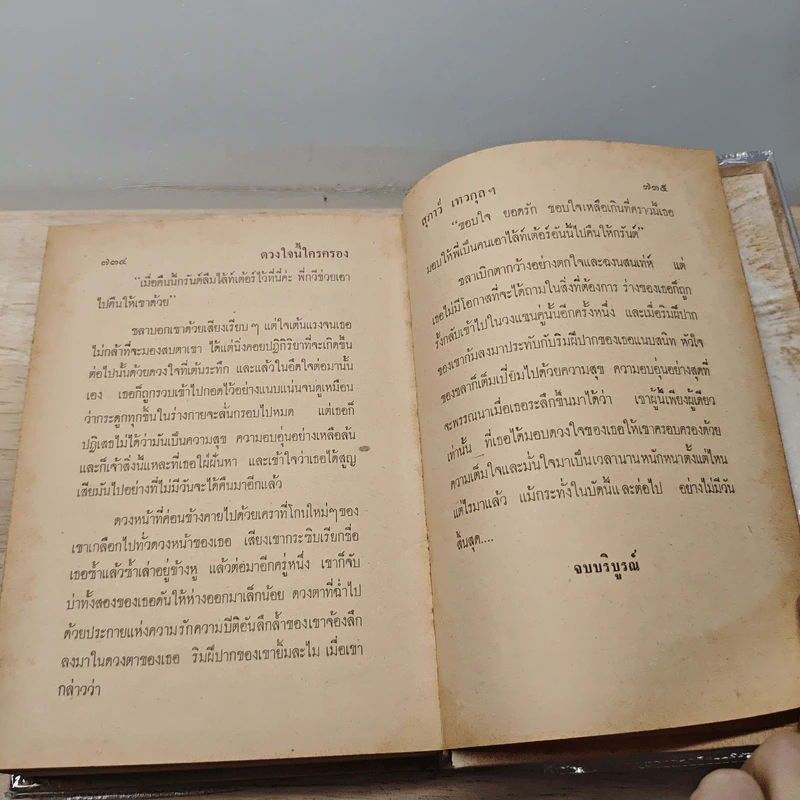 ๗๓๔
ดวงใจนี้ใครครอง
“เมื่อคืนนี้กรันต์ลืมไล้ท์เต้อร์ไว้ที่นี่ค่ะ พี่กวีช่วยเอา
ไปคืนให้เขาด้วย”
ชลาบอกเขาด้วยเสียงเรียบ ๆ แต่ใจเต้นแรงจนเธอ
ไม่กล้าที่จะมองสบตาเขา ได้แต่นิ่งคอยปฏิกิริยาที่จะเกิดขึ้น
ต่อไปนั้นด้วยดวงใจที่เต้นระทึก และแล้วในอึดใจต่อมานั้น
เอง เธอก็ถูกรวบเข้าไปกอดไว้อย่างแนบแน่นจนดูเหมือน
ว่ากระดูกทุกชิ้นในร่างกายจะลั่นกรอบไปหมด แต่เธอก็
ปฏิเสธไม่ได้ว่ามันเป็นความสุข ความอบอุ่นอย่างเหลือล้น
และก็เจ้าสิ่งนี้แหละที่เธอใฝ่ฝันหา และเข้าใจว่าเธอได้สูญ
เสียมันไปอย่างที่ไม่มีวันจะได้คืนมาอีกแล้ว
ดวงหน้าที่ค่อนข้างคายไปด้วยเคราที่โกนใหม่ๆของ
เขาเกลือกไปทั่วดวงหน้าของเธอ เสียงเขากระซิบเรียกชื่อ
เธอซ้ำแล้วซ้ำเล่าอยู่ข้างหู แล้วต่อมาอีกครู่หนึ่ง เขาก็จับ
บ่าทั้งสองของเธอดันให้ห่างออกมาเล็กน้อย ดวงตาที่ฉ่ำไป
ด้วยประกายแห่งความรักความปีติอันลึกล้ำของเขาจ้องลึก
ลงมาในดวงตาของเธอ ริมฝีปากของเขายิ้มละไม เมื่อเขา
กล่าวว่า
สุภาว์ เทวกุลฯ
๗๓๕
“ขอบใจ ยอดรัก ขอบใจเหลือเกินที่คราวนี้เธอ
มอบให้พี่เป็นคนเอาไล้ท์เต้อร์อันนี้ไปคืนให้กรันต์”
ชลาเบิกตากว้างอย่างตกใจและฉงนสนเท่ห์ แต่
เธอไม่มีโอกาสที่จะได้ถามในสิ่งที่ต้องการ ร่างของเธอก็ถูก
รั้งกลับเข้าไปในวงแขนคู่นั้นอีกครั้งหนึ่ง และเมื่อริมฝีปาก
ของเขาก้มลงมาประทับกับริมฝีปากของเธอแนบสนิท หัวใจ
ของชลาก็เต็มเปี่ยมไปด้วยความสุข ความอบอุ่นอย่างสุดที่
จะพรรณนาเมื่อเธอระลึกขึ้นมาได้ว่า เขาผู้นี้เพียงผู้เดียว
เท่านั้น ที่เธอได้มอบดวงใจของเธอให้เขาครอบครองด้วย
ความเต็มใจและมั่นใจมาเป็นเวลานานหนักหนาตั้งแต่ไหน
แต่ไรมาแล้ว แม้กระทั่งในบัดนี้และต่อไป อย่างไม่มีวัน
สิ้นสุด....
จบบริบูรณ์